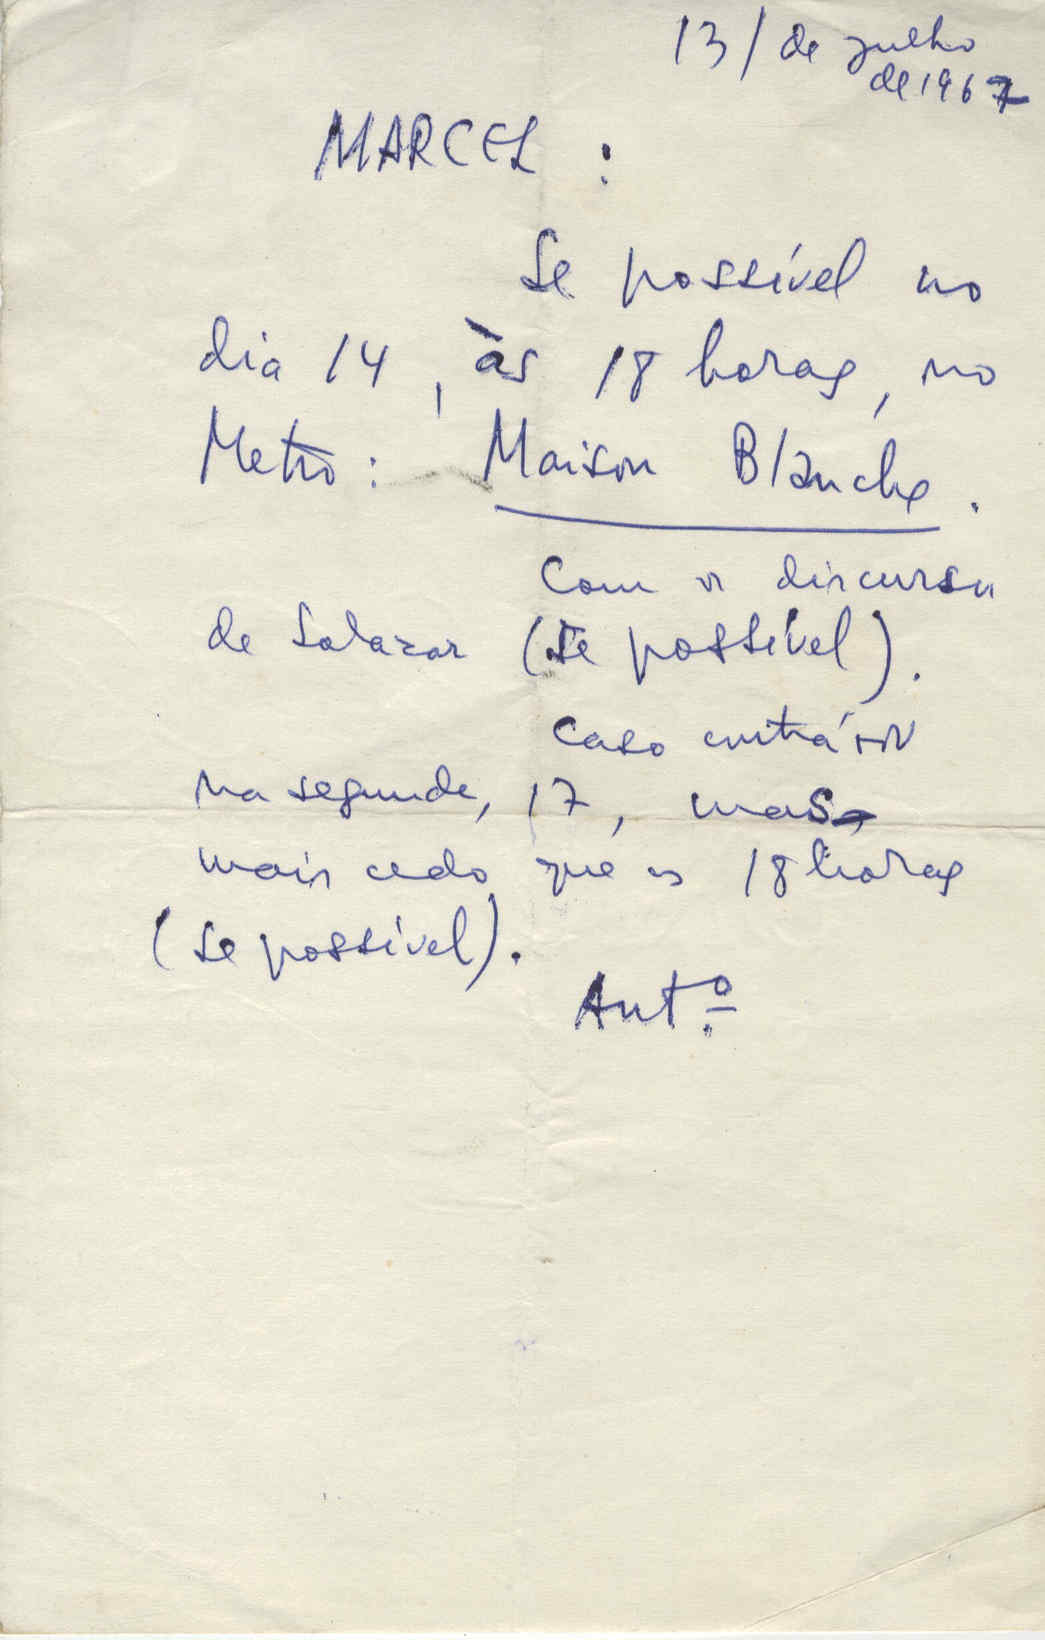 13/ de julho
de 1967
MARCEL :
Se possível no
dia 14, às 18 horas, no
Metro : Maison Blanche.
Com o discurso
de Salazar (se possível).
Caso contrário
na segunda, 17, mas
mais cedo que as 18 horas
(se possível).
Antº